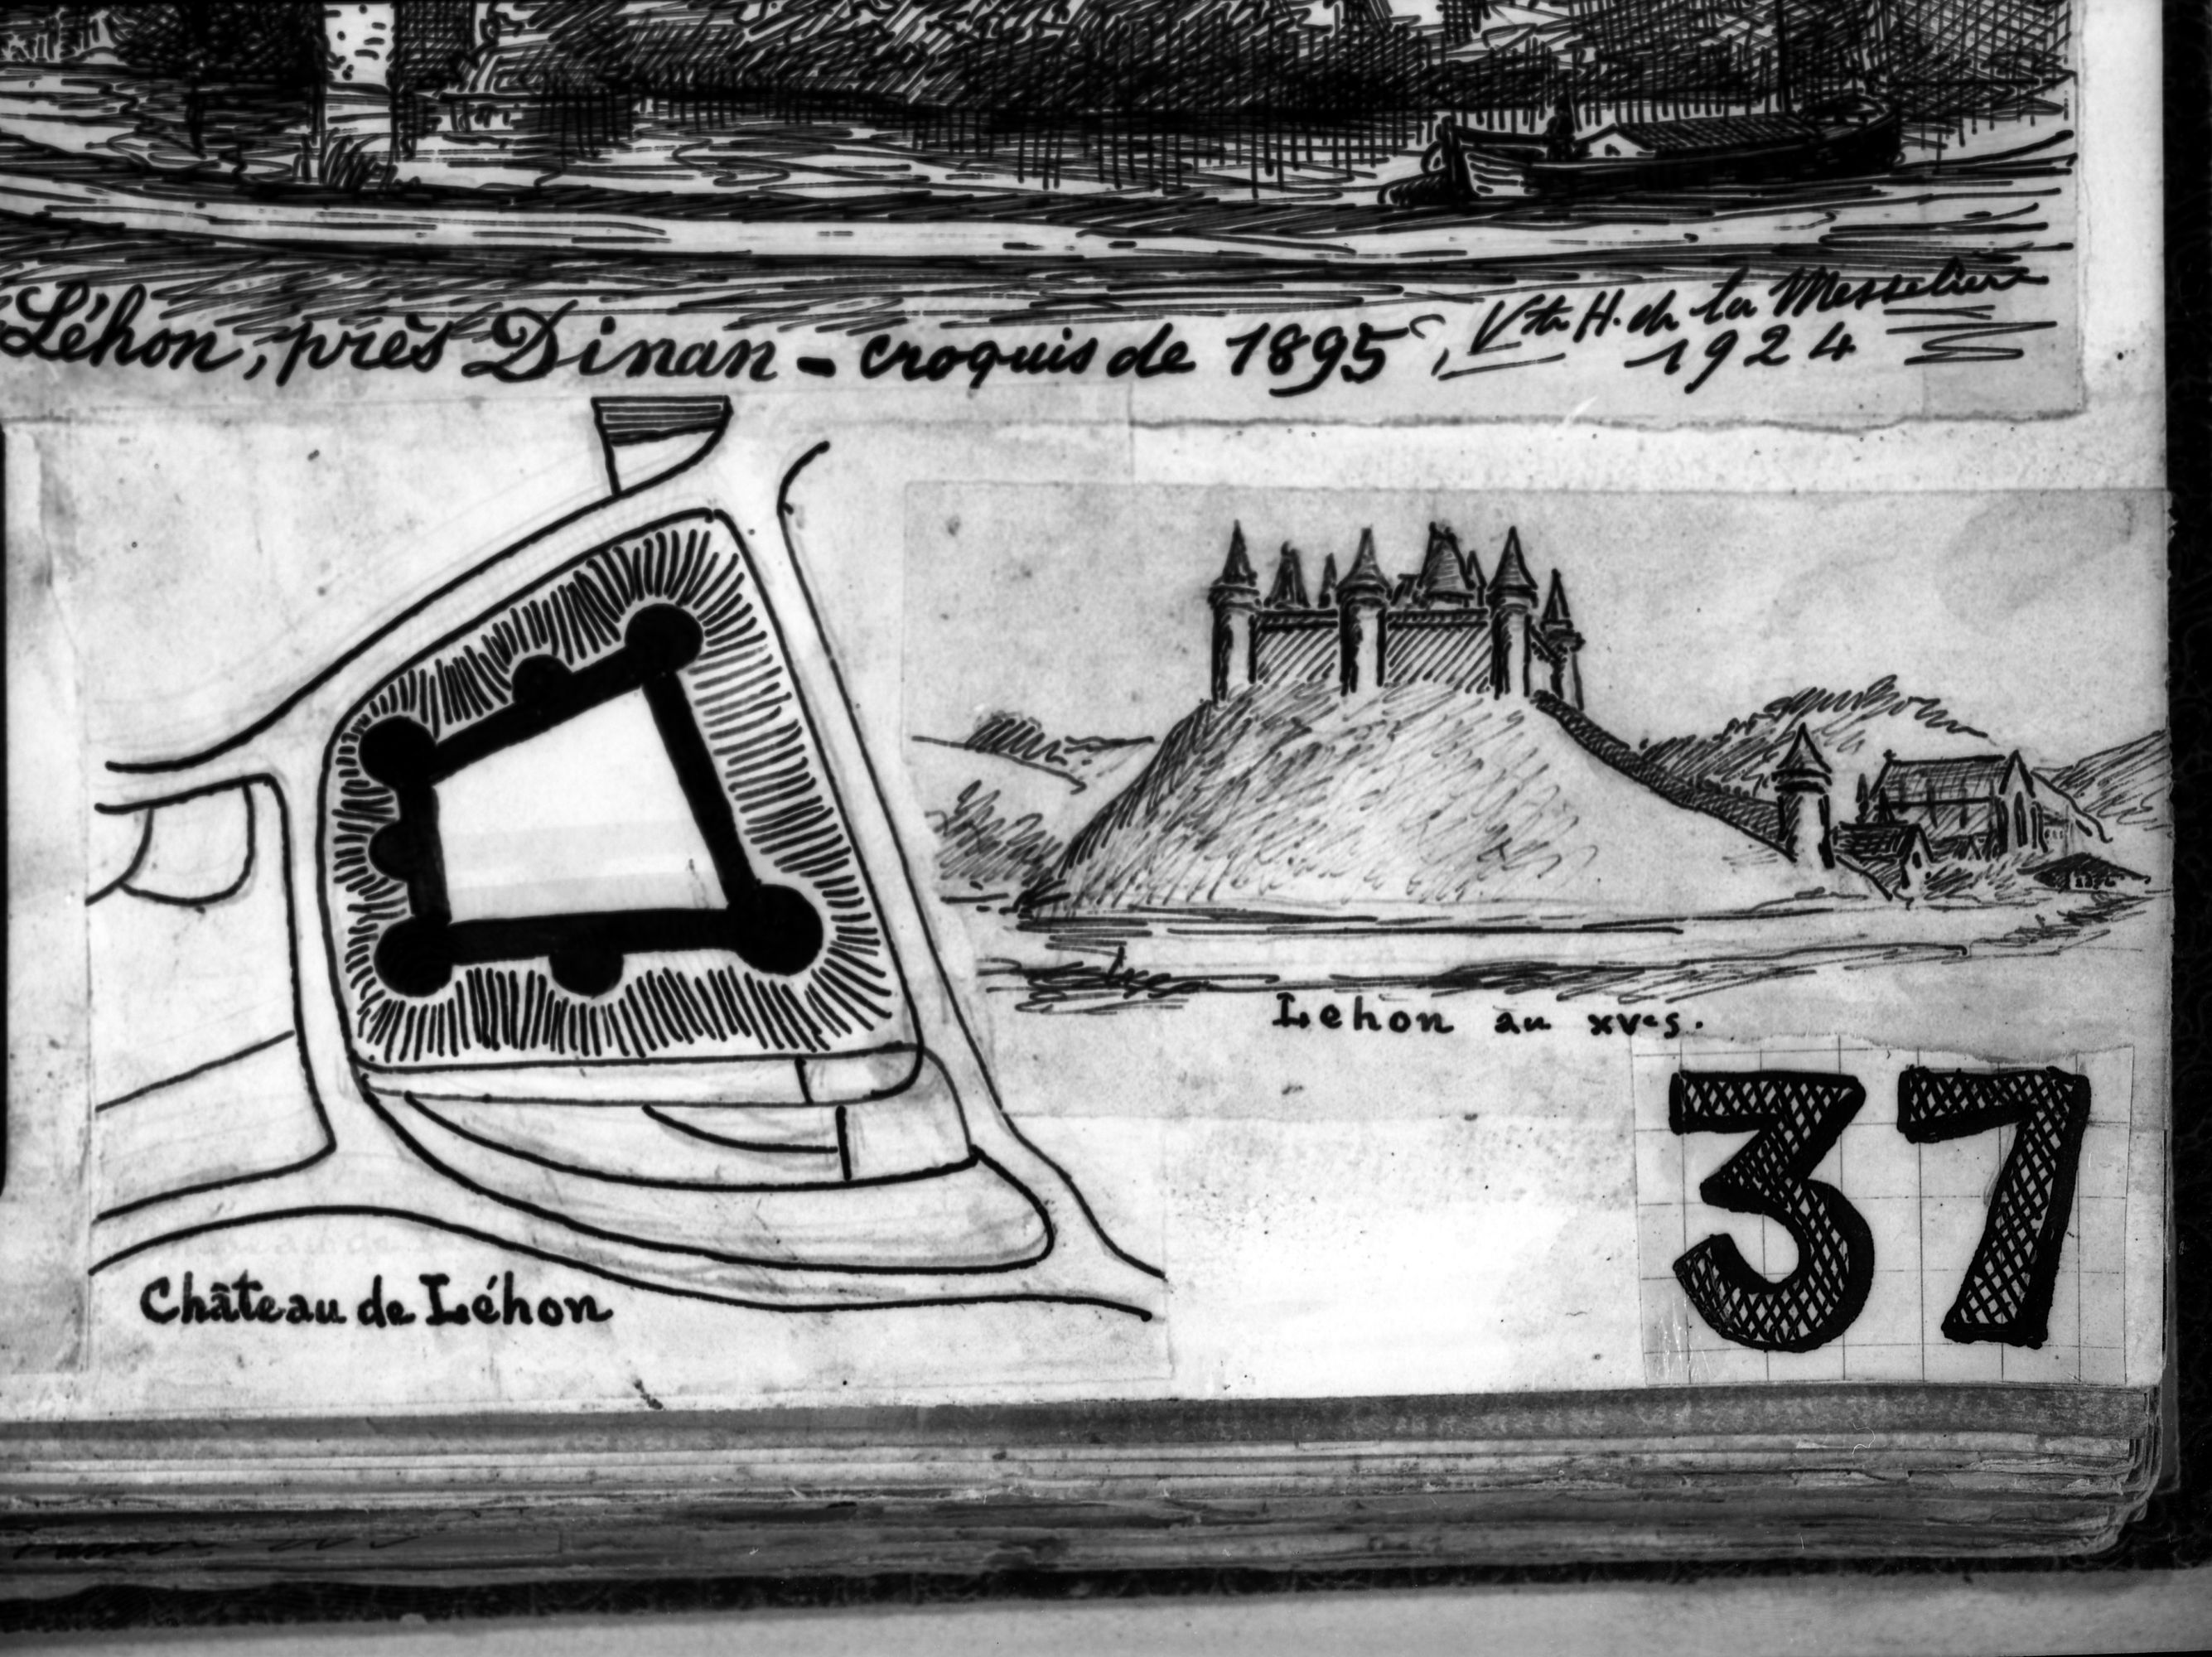 Léhon, près Dinan - croquis de 1895, Vte H. de la Messelière
1924
Léhon au XVe s.
37
Château de Léhon